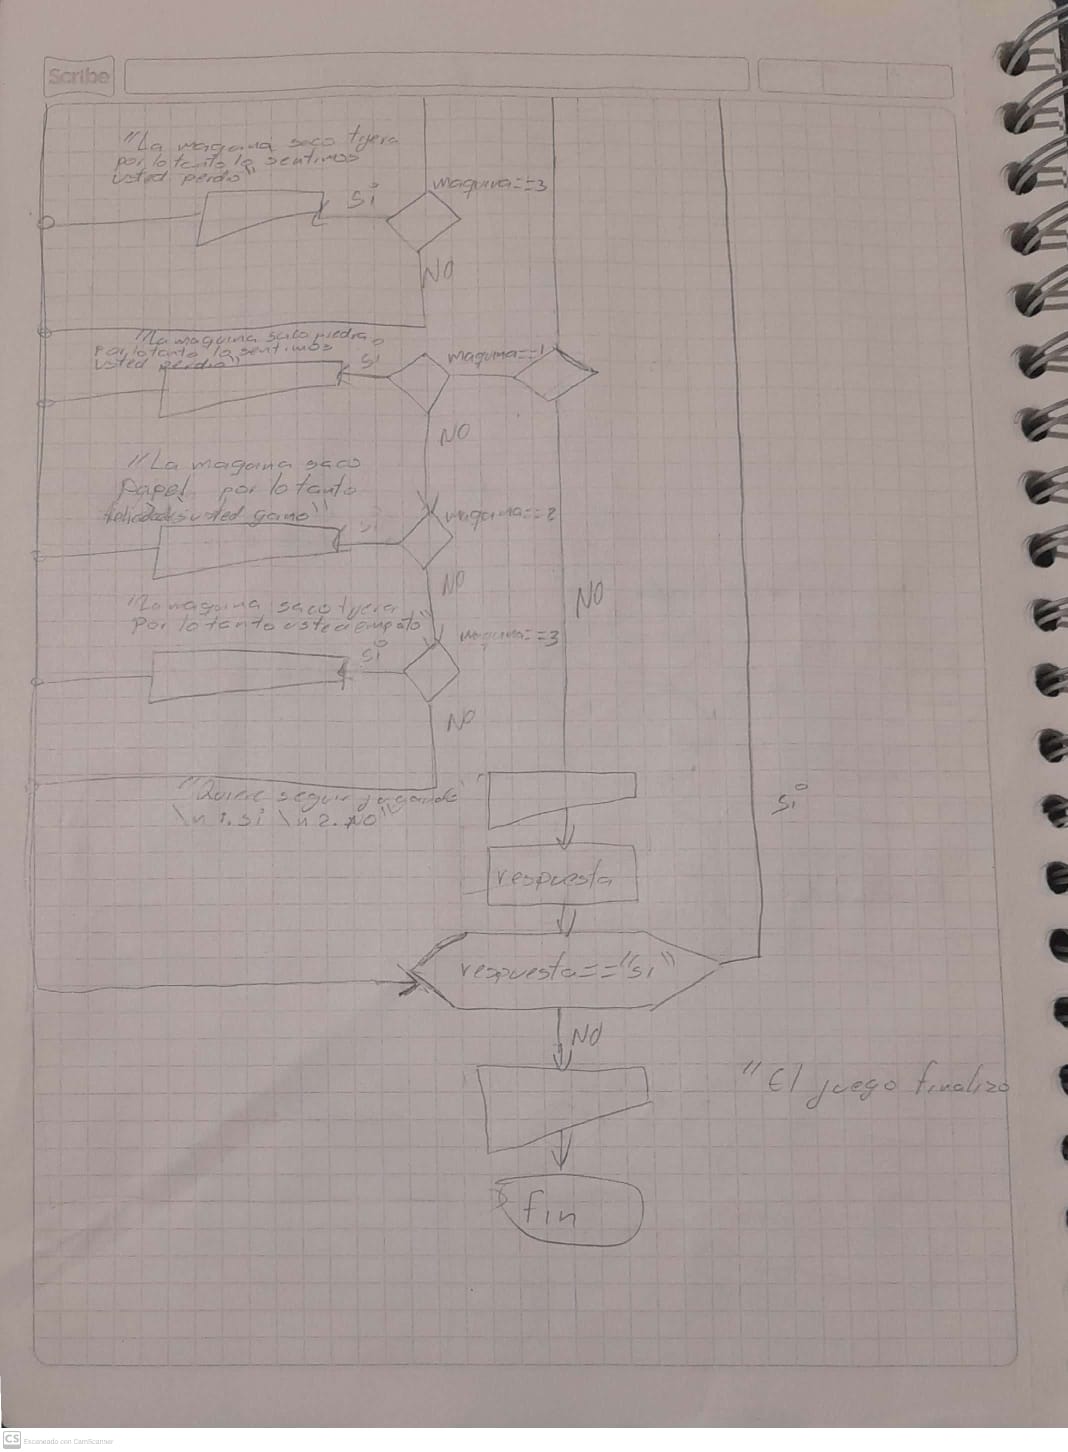 Scribe
"La maquina saco tijera
por lo tanto lo sentimos
usted perdio"
si
maquina==3
NO
"La maquina saco piedra
por lo tanto lo sentimos
usted perdio"
si
maquina==1
NO
"La maquina saco
Papel por lo tanto
usted gano"
si
maquina==2
NO
NO
"La maquina saco tijera
Por lo tanto usted empato"
si
maquina==3
NO
"Quiere seguir jugando
\n 1. si \n 2. NO"
si
respuesta
respuesta=="si"
NO
"El juego finalizo
fin
CS Escaneado con CamScanner